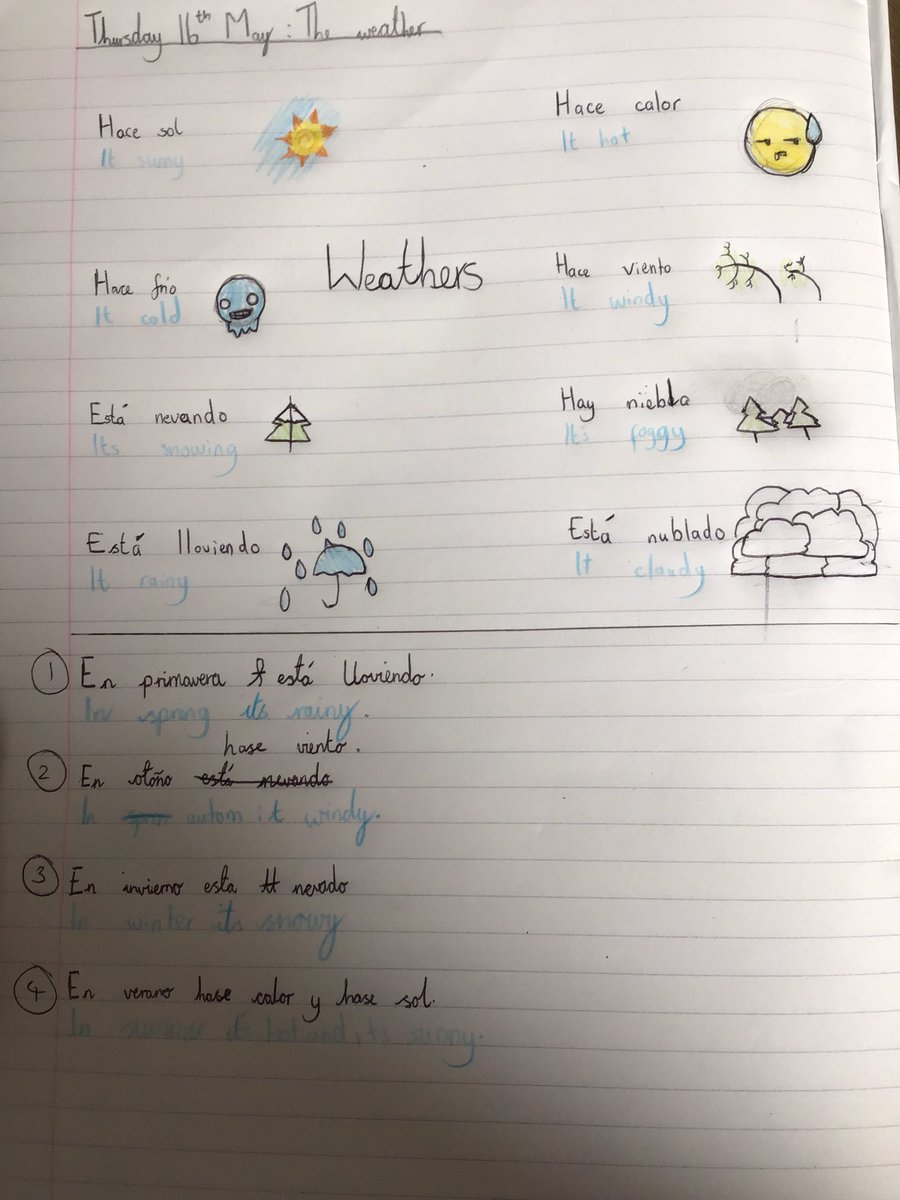 Thursday 16th May: The weather
Hace sol
It sunny
Hace calor
It hot
Weathers
Hace frio
It cold
Hace viento
It windy
Está nevando
Its snowing
Hay niebla
It's foggy
Está lloviendo
It rainy
Está nublado
It cloudy
1 En primavera está lloviendo.
In spring its rainy.
hase viento.
2 En otoño está nevando
In autom it windy.
3 En invierno esta nevado
In winter its snowy
4 En verano hase calor y hase sol.
In summer its hot and it's sunny.